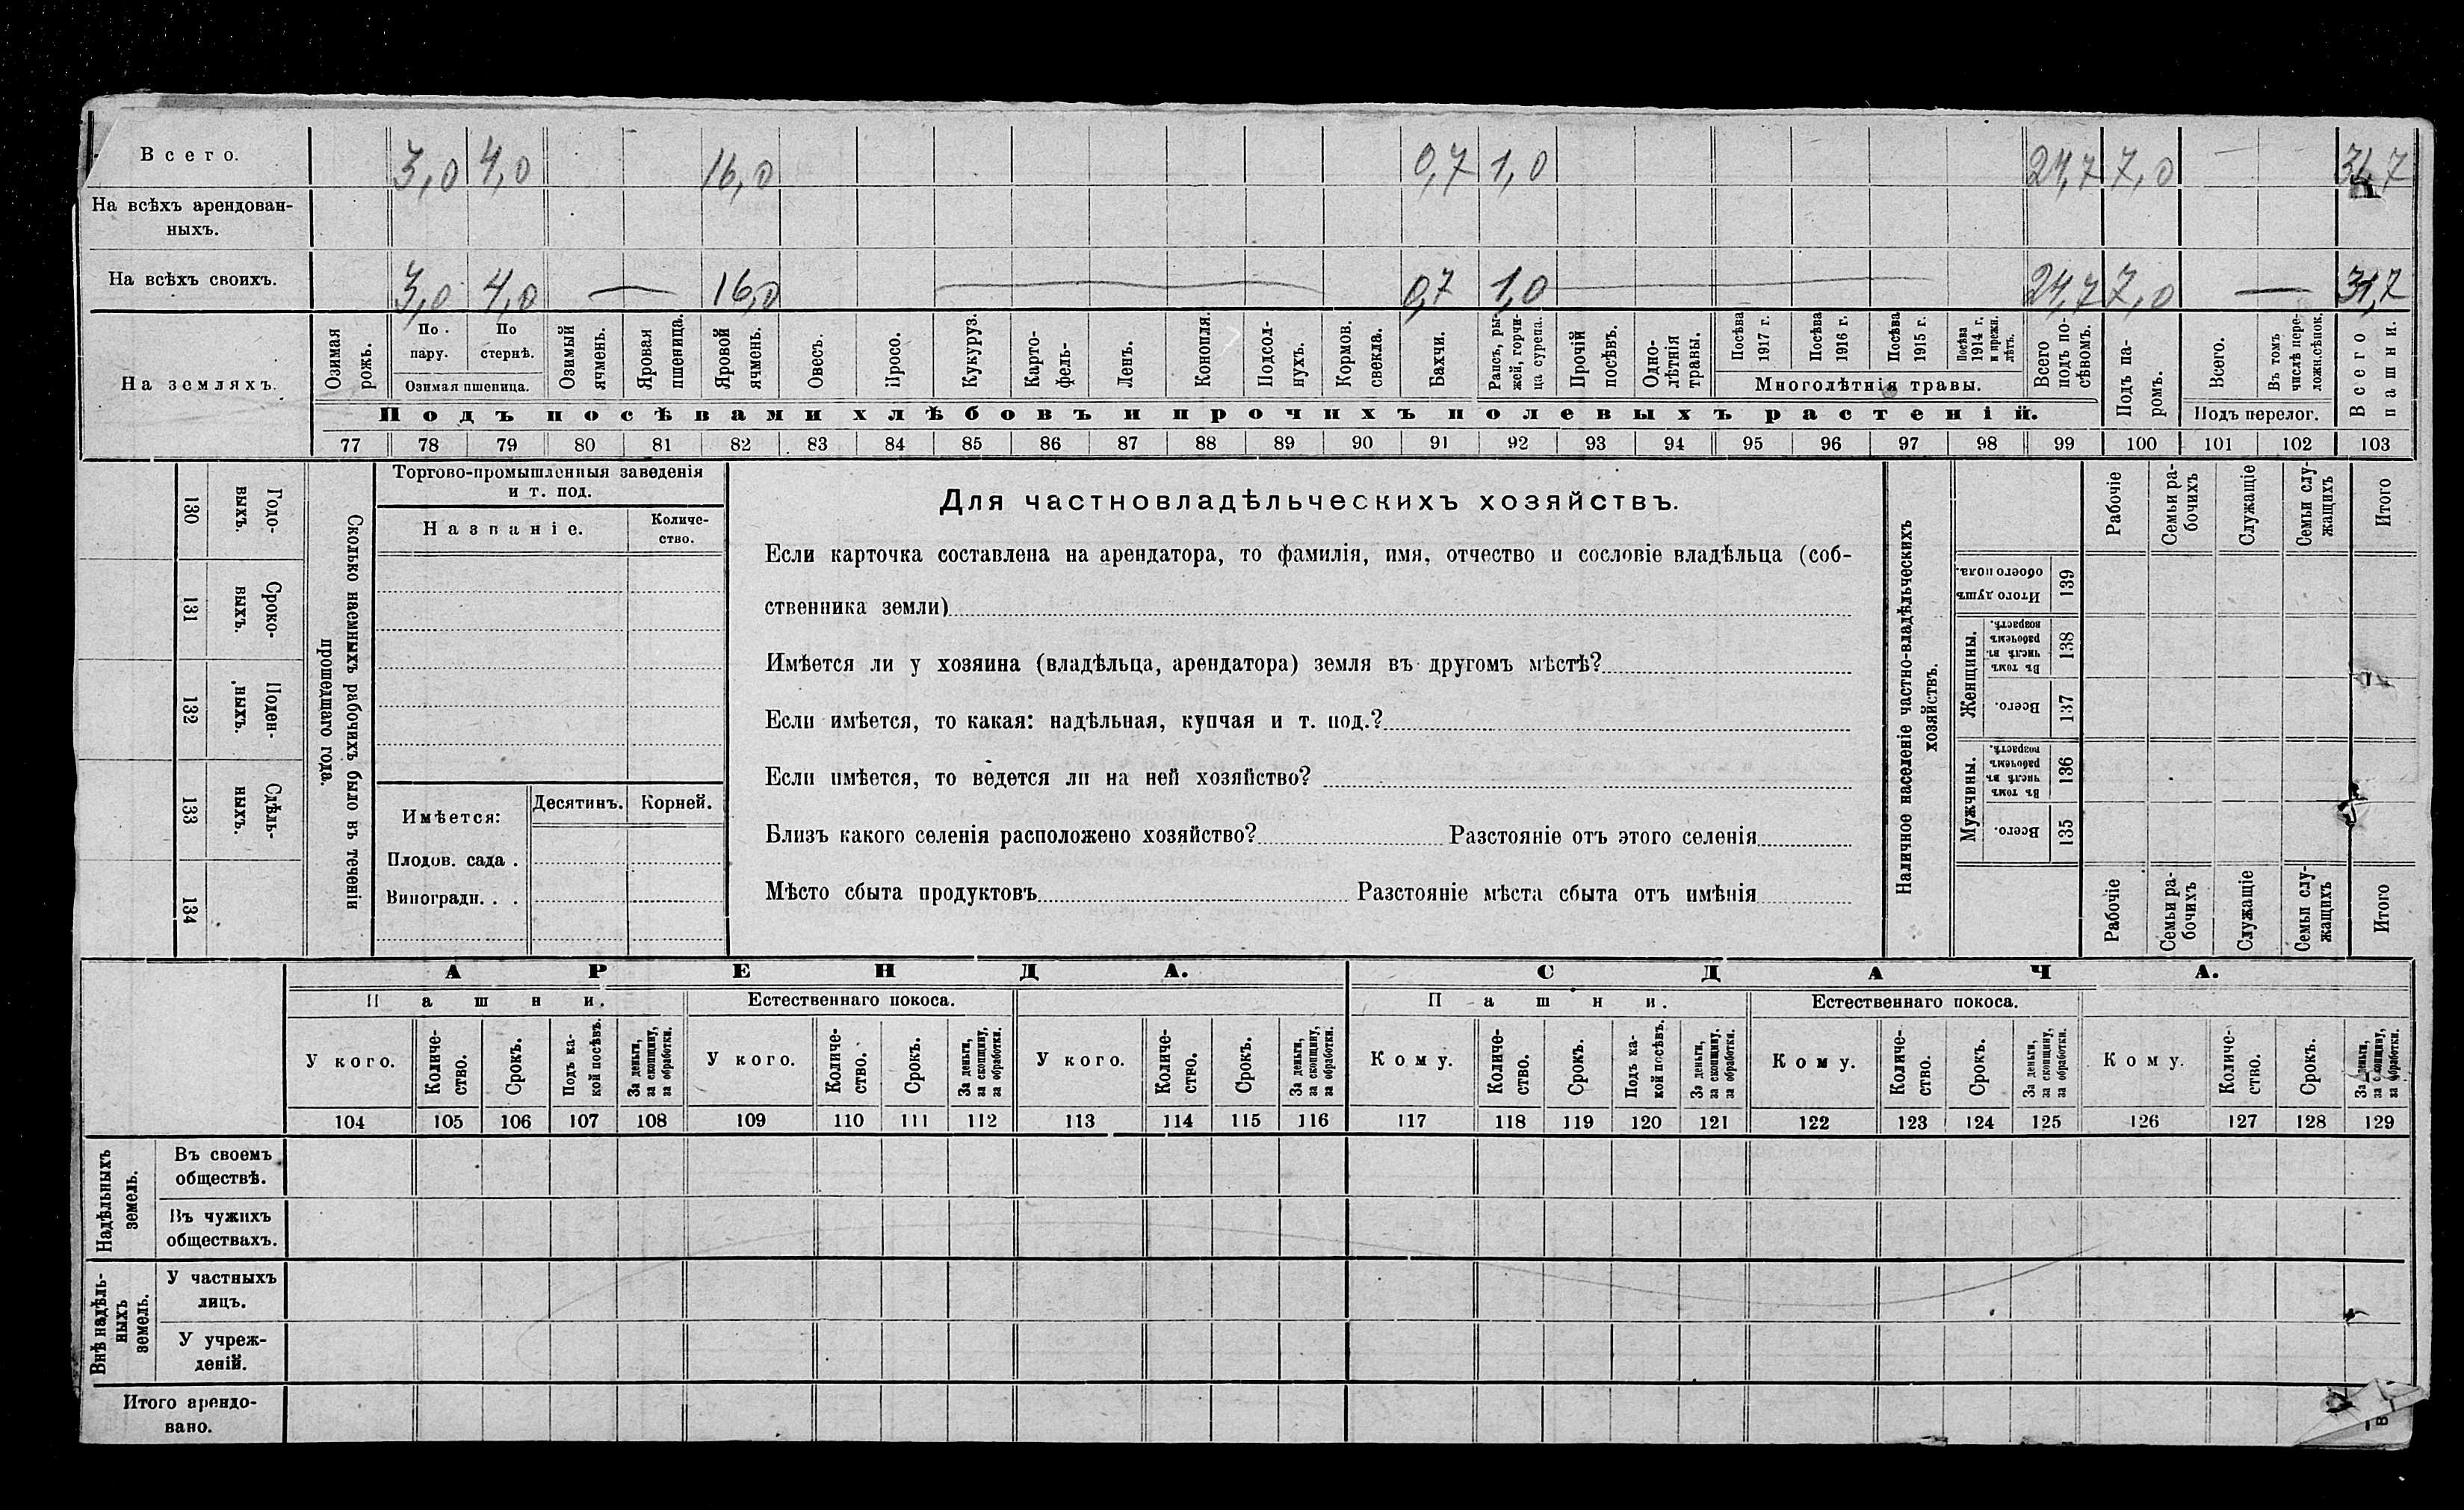 Всего. 3,0 4,0 16,0 0,7 1,0 24,7 7,0 31,7
На всѣхъ арендован-
ныхъ.
На всѣхъ своихъ. 3,0 4,0 — 16,0 — 0,7 1,0 — 24,7 7,0 — 31,7
На земляхъ.
Озимая рожь.
По пару.
По стернѣ.
Озимая пшеница.
Озимый ячмень.
Яровая пшеница.
Яровой ячмень.
Овесъ.
Просо.
Кукуруз.
Карто-
фель-
Ленъ.
Конопля.
Подсол-
нухъ.
Кормов.
свекла.
Бахчи.
Рапсъ, ры-
жей, горчи-
ца сурепа.
Прочій
посѣвъ.
Одно-
лѣтнія
травы.
Посѣва
1917 г.
Посѣва
1916 г.
Посѣва
1915 г.
Посѣва
1914 г.
и прежн.
лѣтъ.
Многолѣтнія травы.
Всего
подъ по-
сѣвомъ.
Подъ па-
ромъ.
Всего.
Въ томъ
числѣ пере-
ложн.сѣнок.
Подъ перелог.
Всего
пашни.
Подъ посѣвами хлѣбовъ и прочихъ полевыхъ растеній.
77 78 79 80 81 82 83 84 85 86 87 88 89 90 91 92 93 94 95 96 97 98 99 100 101 102 103
130 131 132 133 134
Годо-
выхъ.
Сроко-
выхъ.
Поден-
ныхъ.
Сдѣль-
ныхъ.
Сколько наемныхъ рабочихъ было въ теченіи
прошедшаго года.
Торгово-промышленныя заведенія
и т. под.
Названіе.
Количе-
ство.
Имѣется:
Десятинъ.
Корней.
Плодов. сада .
Виноградн. . .
Для частновладѣльческихъ хозяйствъ.
Если карточка составлена на арендатора, то фамилія, имя, отчество и сословіе владѣльца (соб-
ственника земли)
Имѣется ли у хозяина (владѣльца, арендатора) земля въ другомъ мѣстѣ?
Если имѣется, то какая: надѣльная, купчая и т. под.?
Если имѣется, то ведется ли на ней хозяйство?
Близъ какого селенія расположено хозяйство? Разстояніе отъ этого селенія
Мѣсто сбыта продуктовъ Разстояніе мѣста сбыта отъ имѣнія
Наличное населеніе частно-владѣльческихъ
хозяйствъ.
Рабочіе
Семьи ра-
бочихъ
Служащіе
Семьи слу-
жащихъ
Итого
Итого душъ
обоего пола.
139
Женщины.
Въ томъ
числѣ въ
рабочемъ
возрастѣ.
138
Всего.
137
Мужчины.
Въ томъ
числѣ въ
рабочемъ
возрастѣ.
136
Всего.
135
Рабочіе
Семьи ра-
бочихъ
Служащіе
Семьи слу-
жащихъ
Итого
АРЕНДА. СДАЧА.
Пашни. Естественнаго покоса. Пашни. Естественнаго покоса.
У кого.
Количе-
ство.
Срокъ.
Подъ ка-
кой посѣвъ.
За деньги,
за скопщину,
за обработки.
У кого.
Количе-
ство.
Срокъ.
За деньги,
за скопщину,
за обработки.
У кого.
Количе-
ство.
Срокъ.
За деньги,
за скопщину,
за обработки.
Кому.
Количе-
ство.
Срокъ.
Подъ ка-
кой посѣвъ.
За деньги,
за скопщину.
за обработки.
Кому.
Количе-
ство.
Срокъ.
За деньги,
за скопщину,
за обработки.
Кому.
Количе-
ство.
Срокъ.
За деньги,
за скопщину,
за обработки.
104 105 106 107 108 109 110 111 112 113 114 115 116 117 118 119 120 121 122 123 124 125 126 127 128 129
Надѣльныхъ
земель.
Въ своемъ
обществѣ.
Въ чужихъ
обществахъ.
Внѣ надѣль-
ныхъ
земель.
У частныхъ
лицъ.
У учреж-
деній.
Итого арендо-
вано.